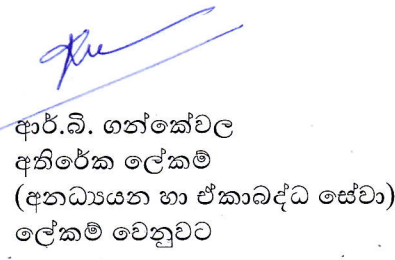 ආර්.බී. ගන්කේවල
අතිරේක ලේකම්
(අනධ්‍යයන හා ඒකාබද්ධ සේවා)
ලේකම් වෙනුවට